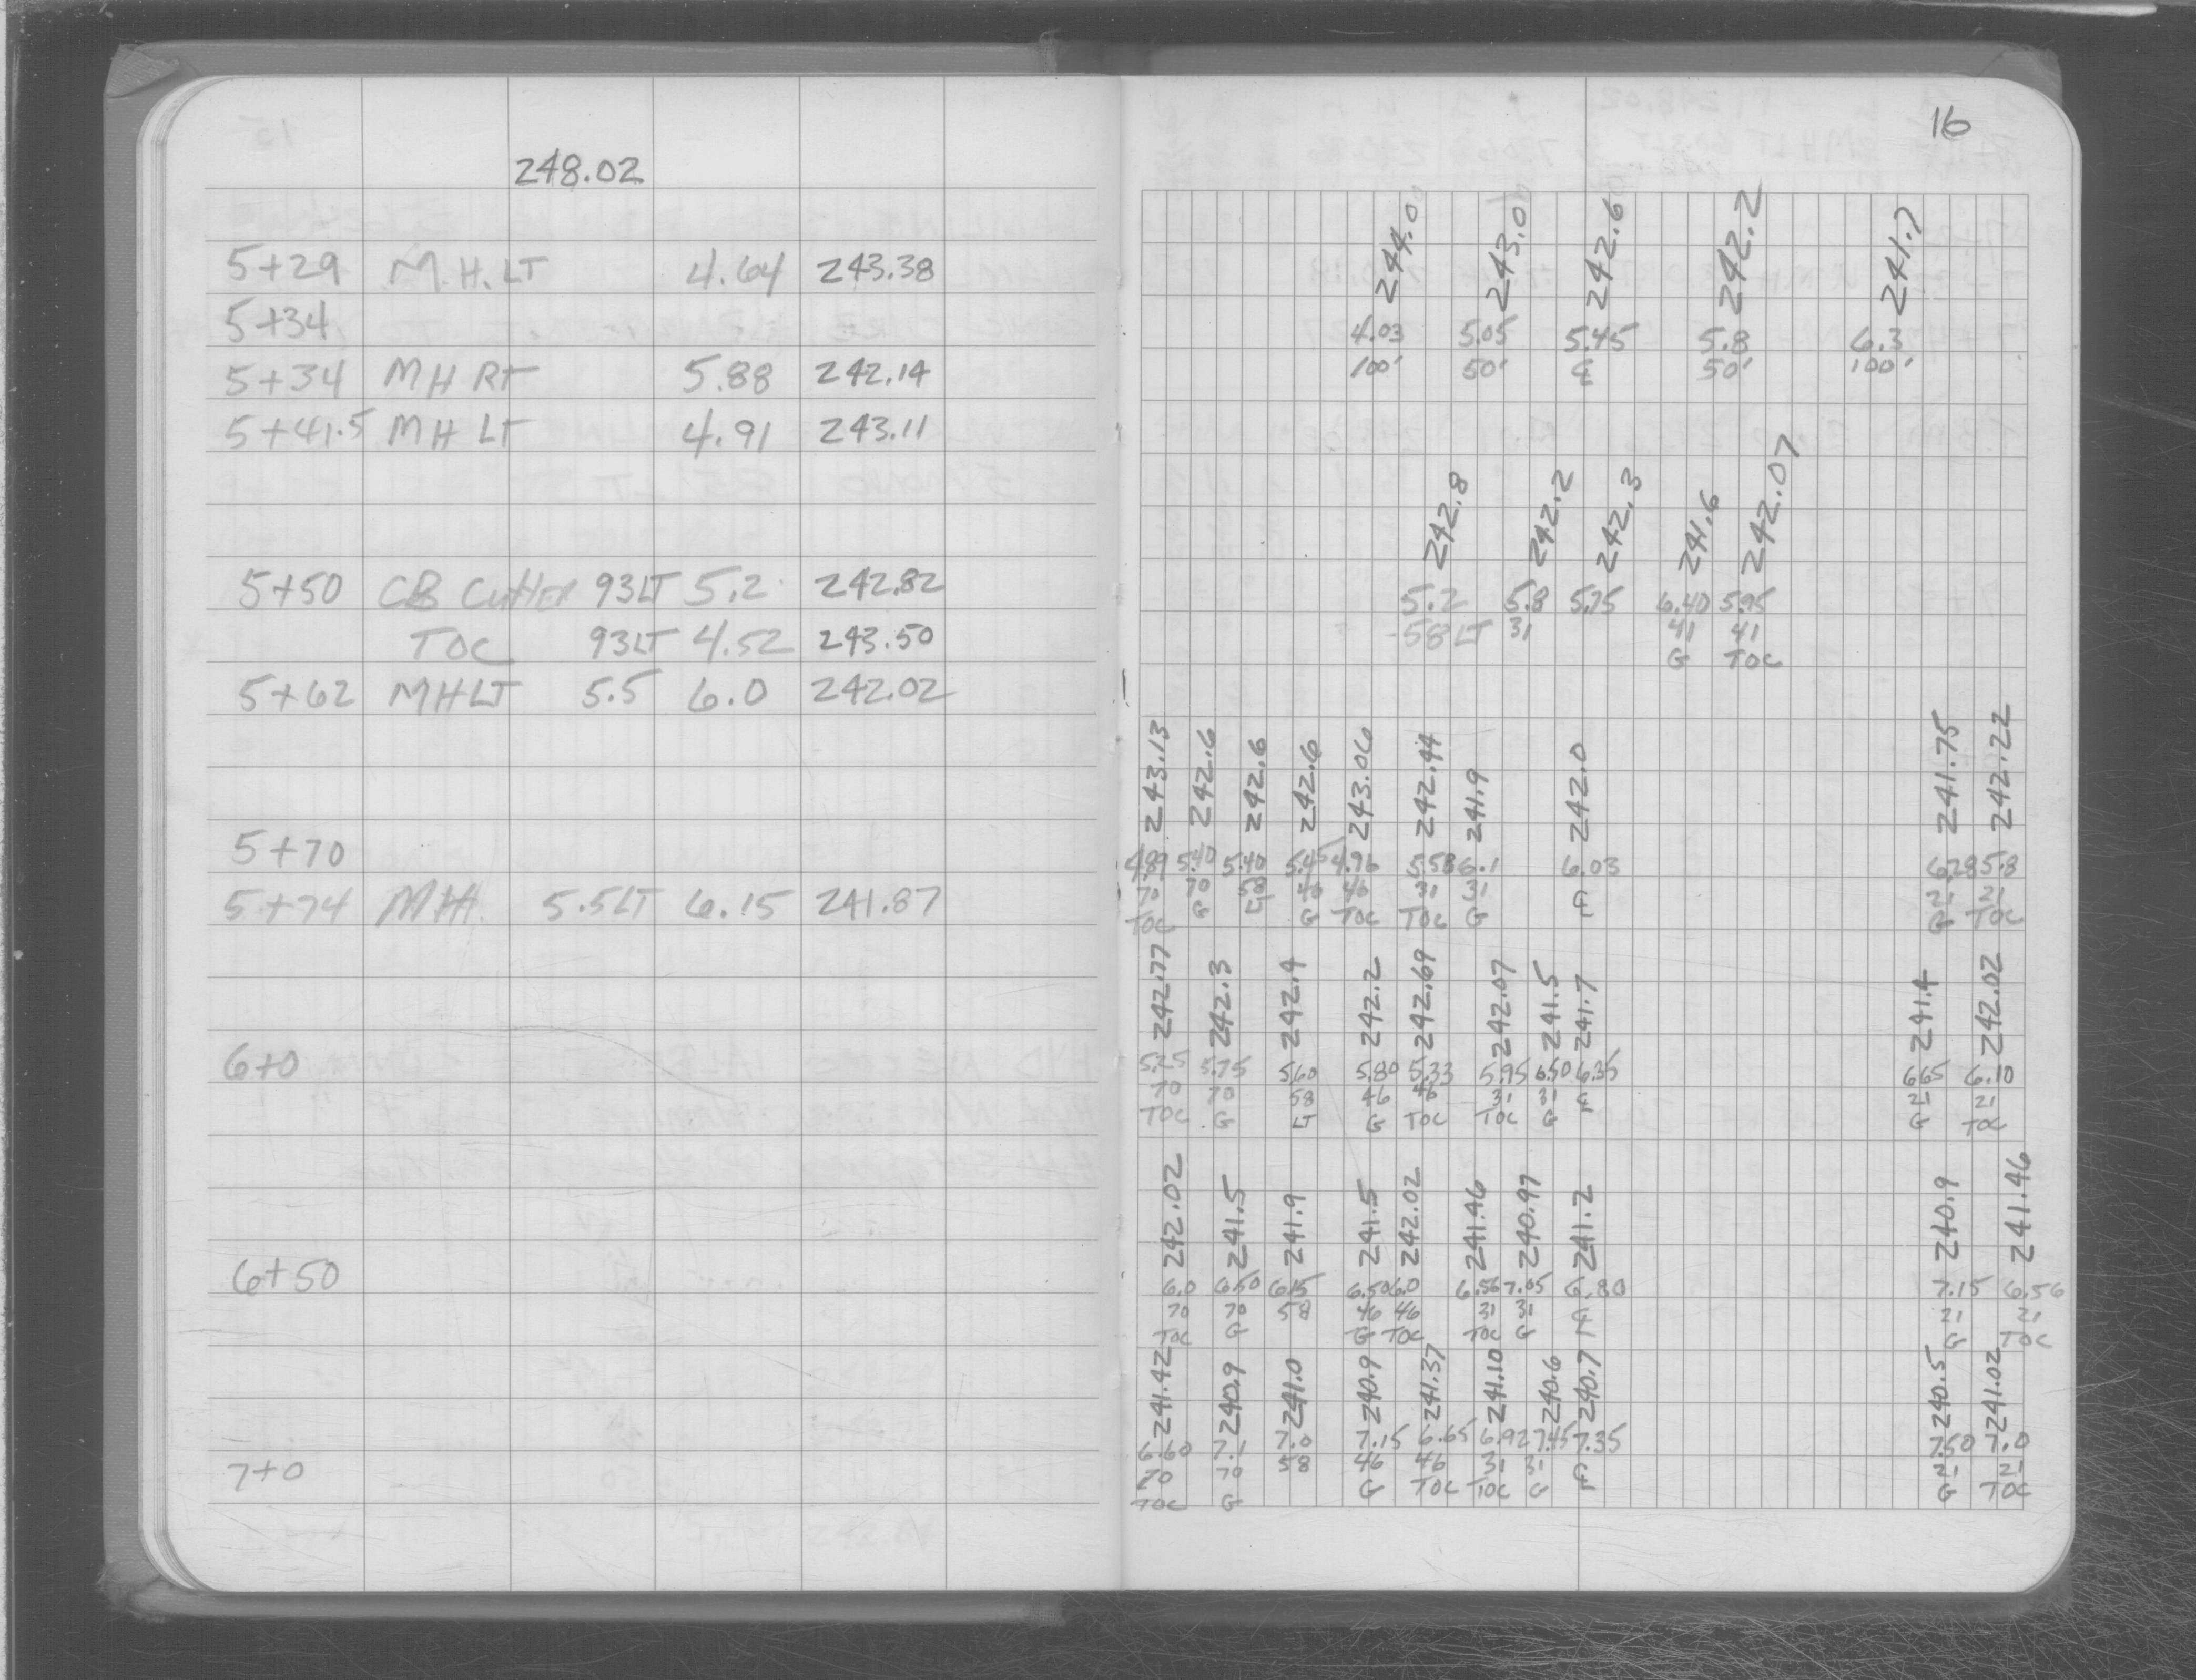 248.02
5+29 M.H. LT 4.64 243.38
5+34
5+34 MH RT 5.88 242.14
5+41.5 MH LT 4.91 243.11
5+50 CB Gutter 93LT 5.2 242.82
TOC 93LT 4.52 243.50
5+62 MHLT 5.5 6.0 242.02
5+70
5+74 MH. 5.5LT 6.15 241.87
6+0
6+50
7+0
16
244.0 243.0 242.6 242.2 241.7
4.03 5.05 5.45 5.8 6.3
100' 50' ℄ 50' 100'
242.8 242.2 242.3 241.6 242.07
5.2 5.8 5.75 6.40 5.95
58 LT 31 41 41
G TOC
243.13 242.6 242.6 242.6 243.06 242.44 241.9 242.0 241.75 242.22
4.89 5.40 5.40 5.45 4.96 5.58 6.1 6.03 6.28 5.8
70 70 58 46 46 31 31 ℄ 21 21
TOC G LT G TOC TOC G G TOC
242.77 242.3 242.4 242.2 242.69 242.07 241.5 241.7 241.4 242.02
5.25 5.75 5.60 5.80 5.33 5.95 6.50 6.35 6.65 6.10
70 70 58 46 46 31 31 ℄ 21 21
TOC G LT G TOC TOC G G TOC
242.02 241.5 241.9 241.5 242.02 241.46 240.97 241.2 240.9 241.46
6.0 6.50 6.15 6.50 6.0 6.56 7.05 6.80 7.15 6.56
70 70 58 46 46 31 31 ℄ 21 21
TOC G G TOC TOC G G TOC
241.42 240.9 241.0 240.9 241.37 241.10 240.6 240.7 240.5 241.02
6.60 7.1 7.0 7.15 6.65 6.92 7.45 7.35 7.50 7.0
70 70 58 46 46 31 31 ℄ 21 21
TOC G G TOC TOC G G TOC